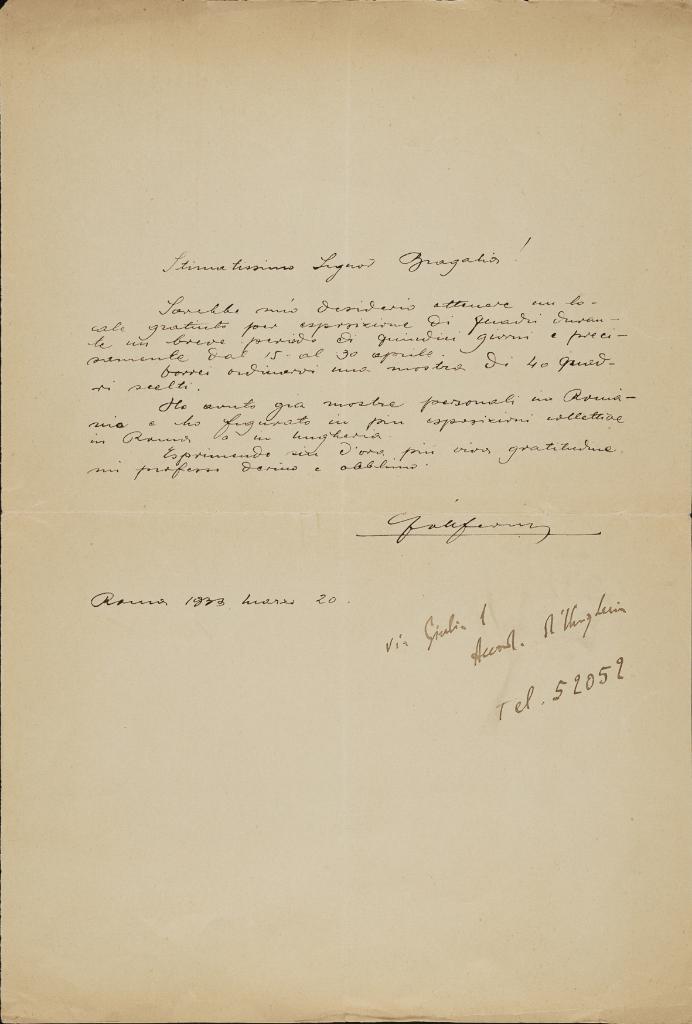 Stimatissimo Signor Bragalia!
Sarebbe mio desiderio ottenere un lo-
cale gratuito per esposizione di quadri duran-
te un breve periodo di quindici giorni e preci-
samente dal 15 al 30 aprile.
Vorrei ordinarvi una mostra di 40 quad-
ri scelti.
Ho avuto già mostre personali in Roma-
nia e ho figurato in più esposizioni collettive
in Roma e in Ungheria.
Esprimendo sin d'ora più viva gratitudine
mi professo
Roma 1933 marzo 20.
via Giulia 1
Accad. d'Ungheria
Tel. 52052